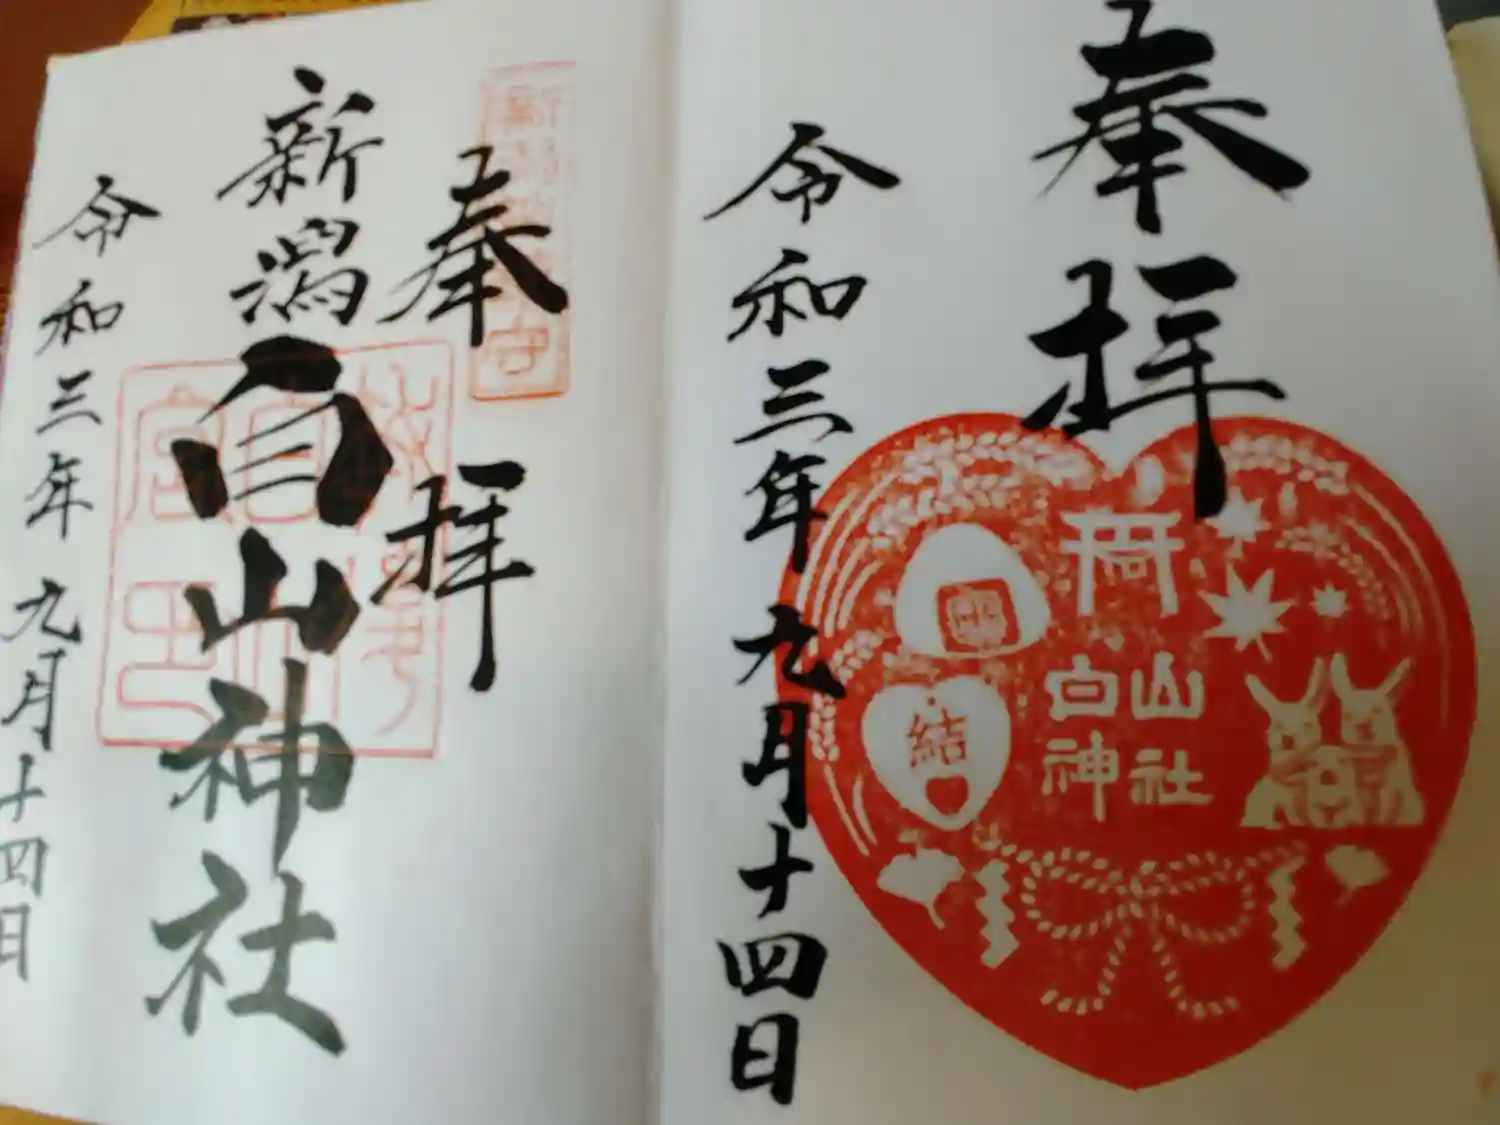 奉拝
結
白山
神社
令和三年九月十四日
奉拝
新潟
白山神社
令和三年九月十四日